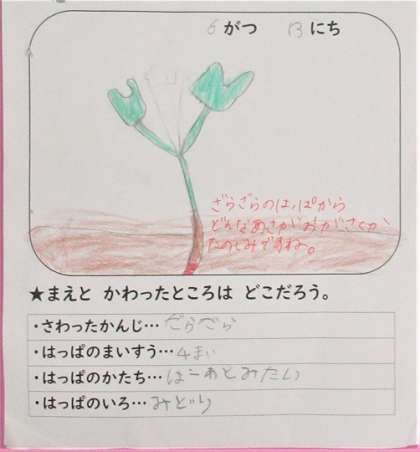 6 がつ 13 にち
ざらざらのはっぱから
どんなあさがおがさくか
たのしみですね。
★まえと かわったところは どこだろう。
・さわったかんじ… ざらざら
・はっぱのまいすう… 4まい
・はっぱのかたち… はーとみたい
・はっぱのいろ… みどり